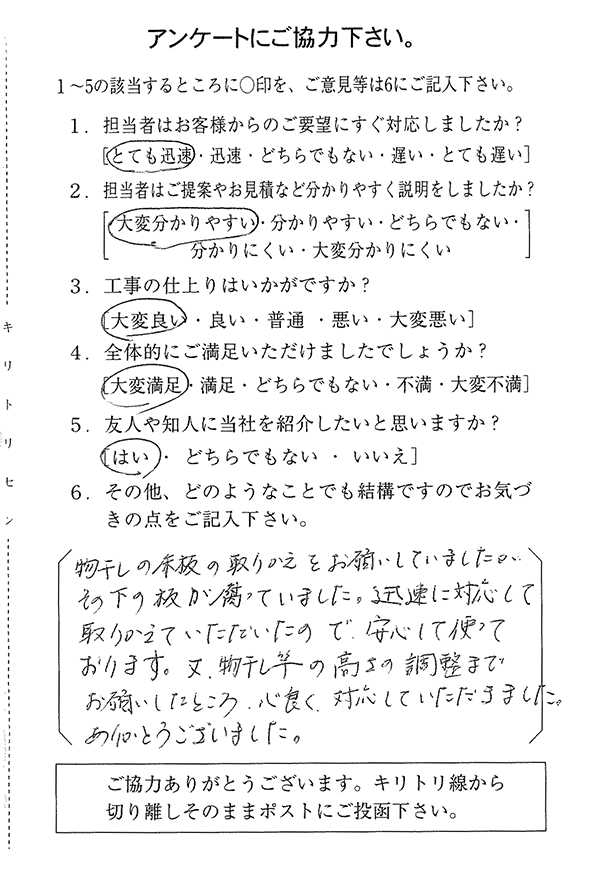 アンケートにご協力下さい。
1～5の該当するところに〇印を、ご意見等は6にご記入下さい。
1．担当者はお客様からのご要望にすぐ対応しましたか？
[とても迅速・迅速・どちらでもない・遅い・とても遅い]
2．担当者はご提案やお見積など分かりやすく説明をしましたか？
[大変分かりやすい・分かりやすい・どちらでもない・
分かりにくい・大変分かりにくい]
3．工事の仕上りはいかがですか？
[大変良い・良い・普通・悪い・大変悪い]
4．全体的にご満足いただけましたでしょうか？
[大変満足・満足・どちらでもない・不満・大変不満]
5．友人や知人に当社を紹介したいと思いますか？
[はい・どちらでもない・いいえ]
6．その他、どのようなことでも結構ですのでお気づ
きの点をご記入下さい。
物干しの床板の取りかえをお願いしていましたが、
その下の板が腐っていました。迅速に対応して
取りかえていただいたので、安心して使って
おります。又、物干し竿の高さの調整まで
お願いしたところ、心良く、対応していただきました。
ありがとうございました。
ご協力ありがとうございます。キリトリ線から
切り離しそのままポストにご投函下さい。
キリトリセン